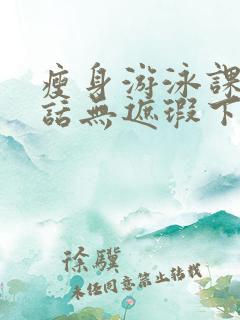 瘦身游泳課
話無遮瑕下
徐驥
未经同意禁止转载